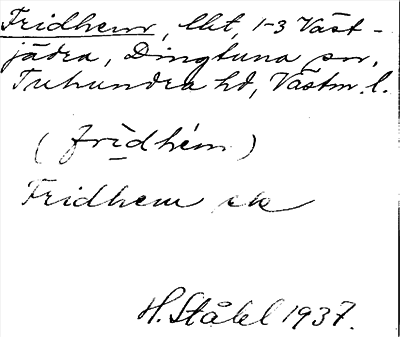 Fridhem, lht, 1-3 Väst-
jädra, Dingtuna sn,
Tuhundra hd, Västm. l.
(frìdhém)
Fridhem ek
H. Ståhl 1937.